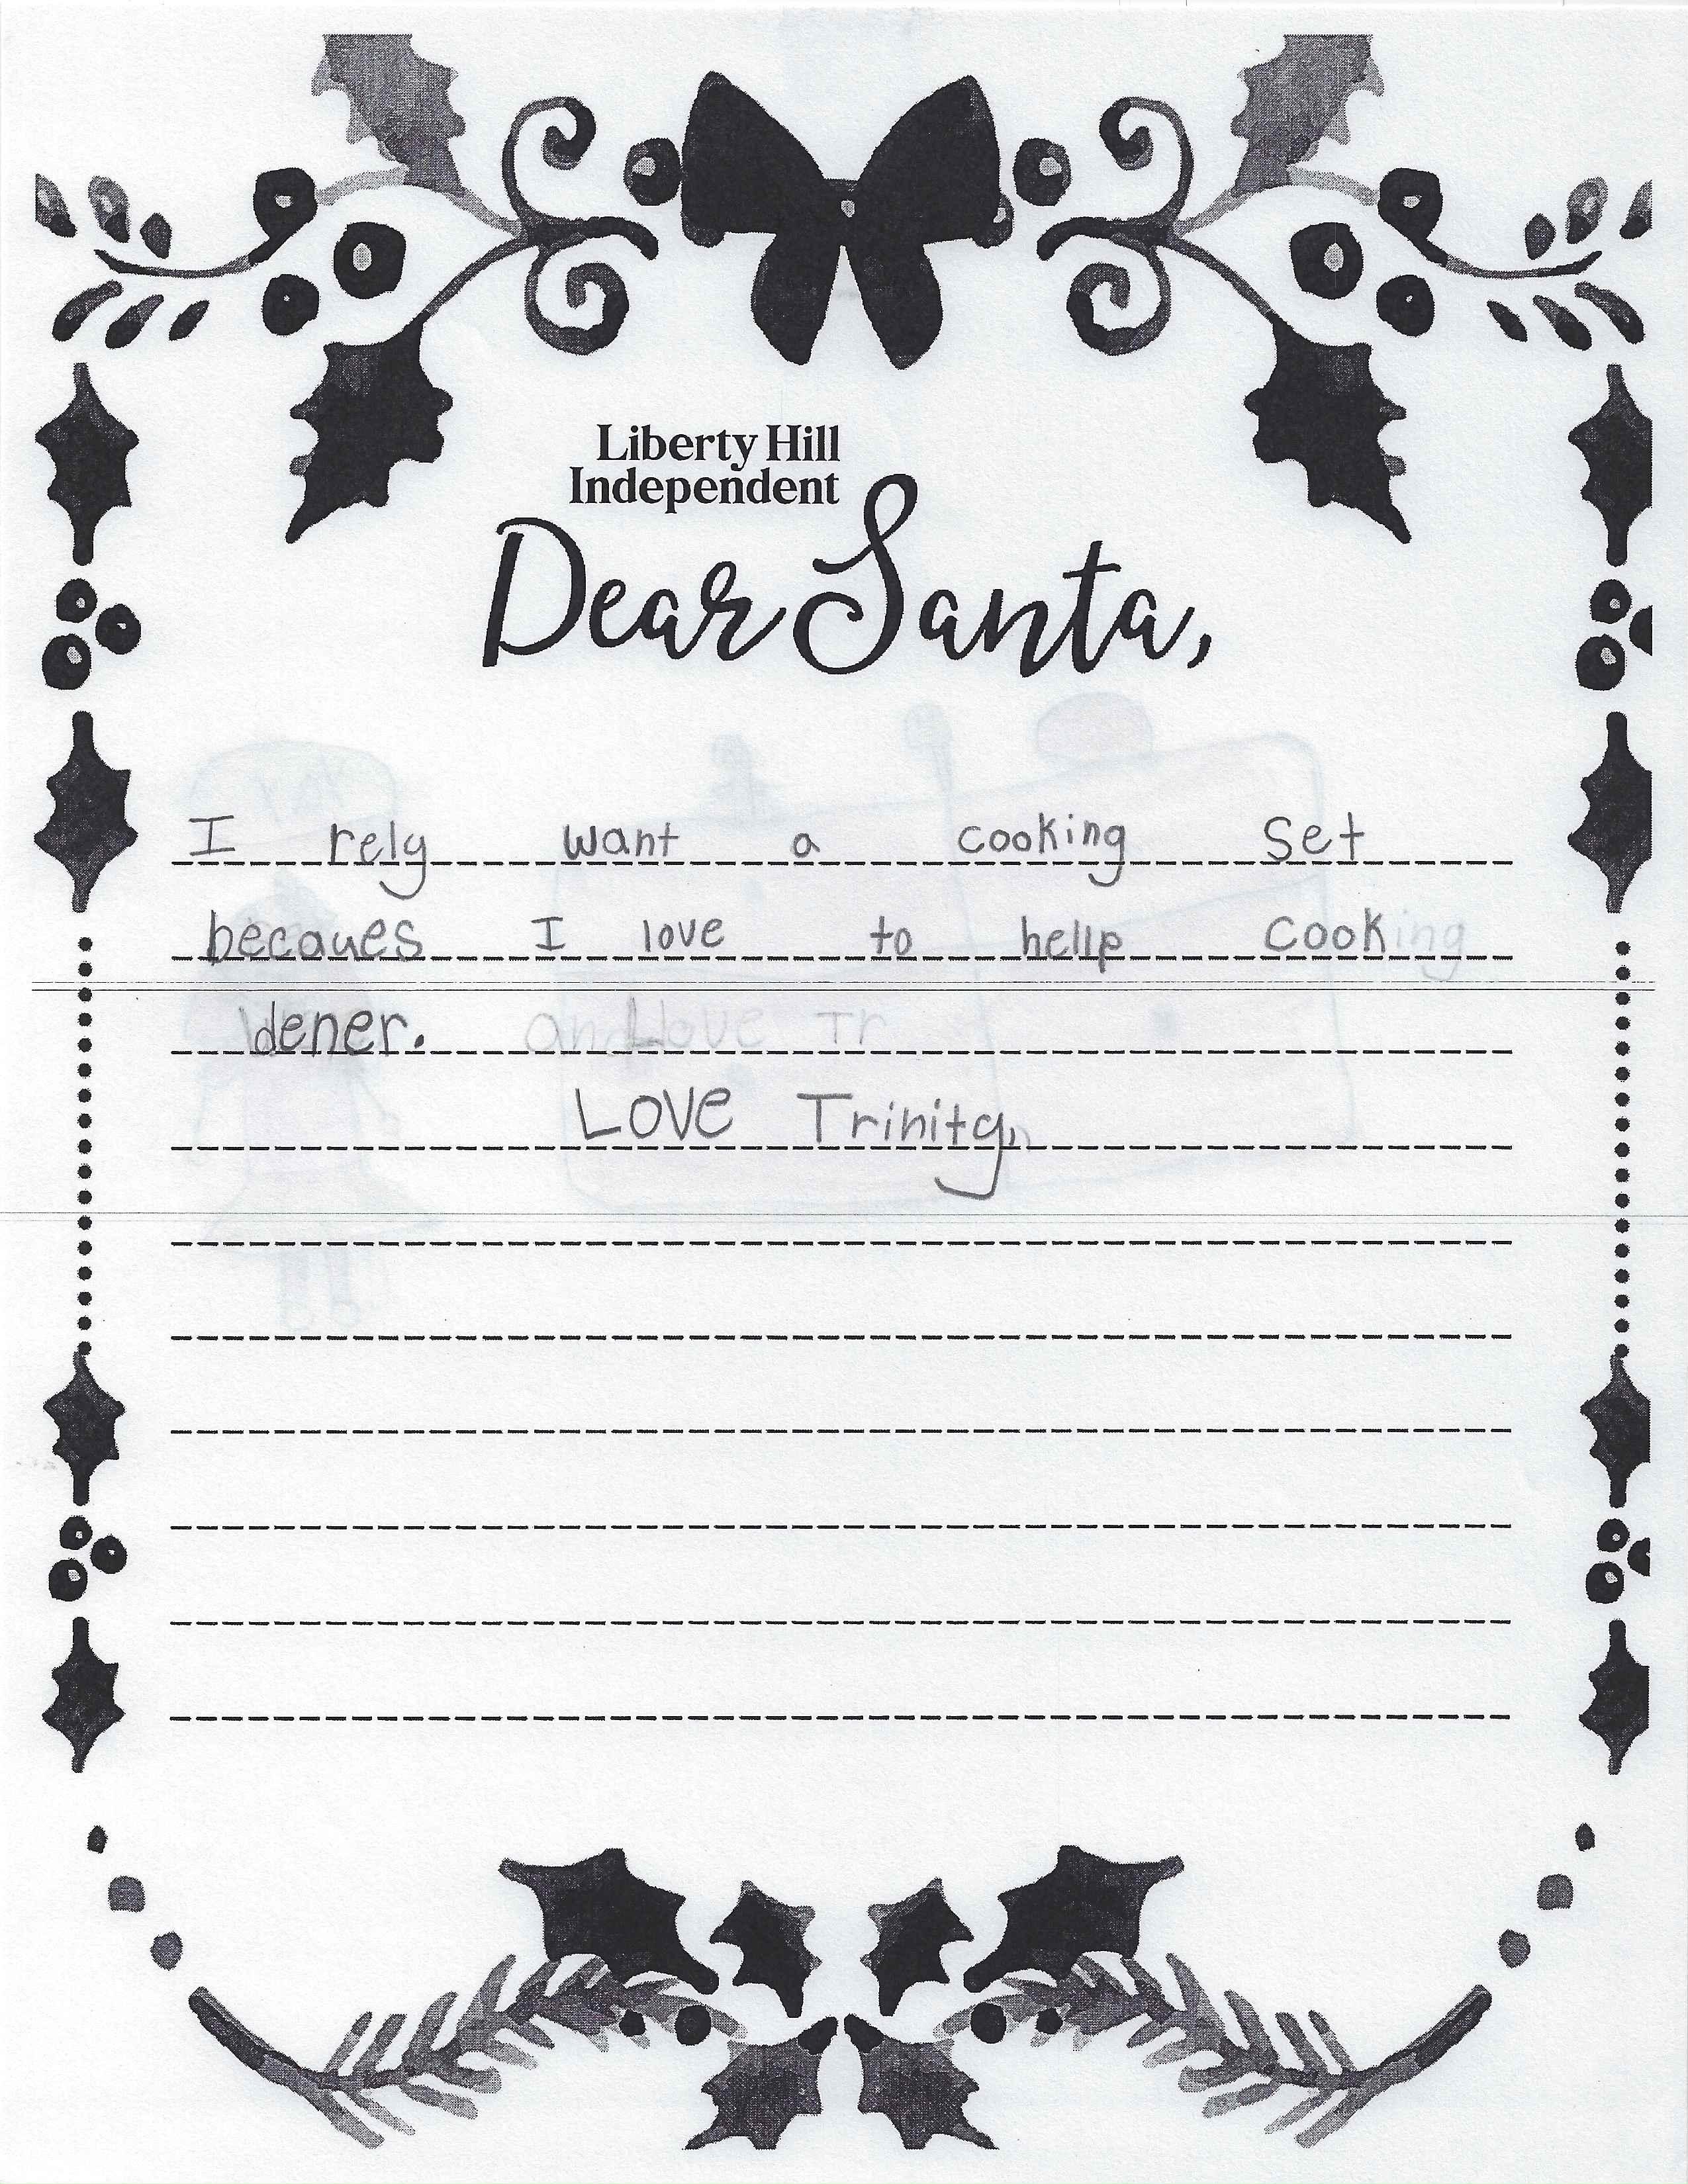 Liberty Hill
Independent
Dear Santa,
I rely want a cooking Set
becaues I love to hellp cooking
dener. and Love Tr
LOVE Trinity,